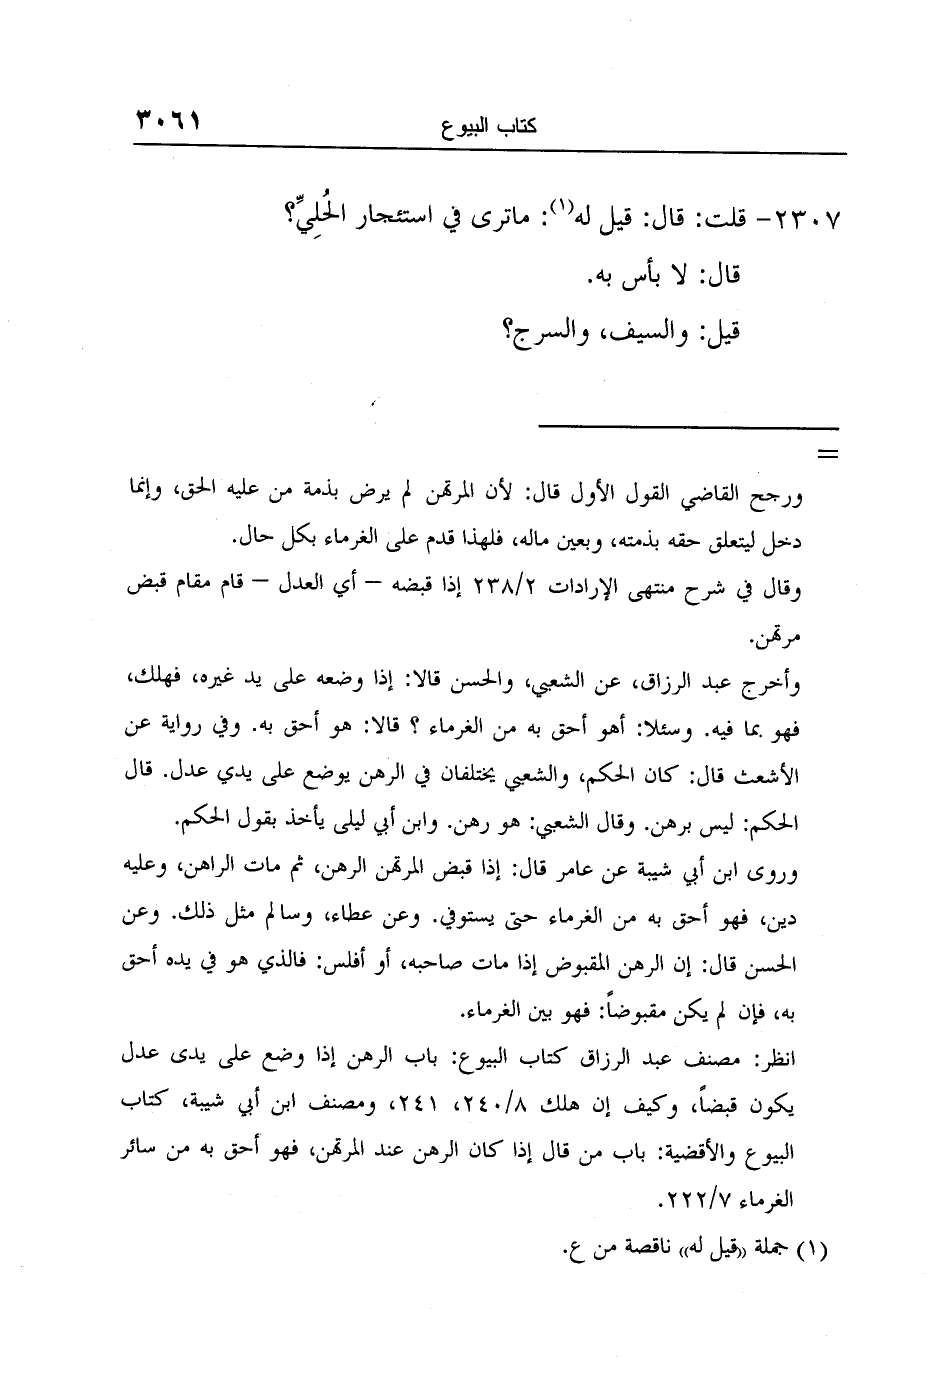 كتاب البيوع ٣٠٦١
٢٣٠٧- قلت: قال: قيل له(١): ماترى في استئجار الحُلِيِّ؟
قال: لا بأس به.
قيل: والسيف، والسرج؟
=
ورجح القاضي القول الأول قال: لأن المرتهن لم يرض بذمة من عليه الحق، وإنما
دخل ليتعلق حقه بذمته، وبعين ماله، فلهذا قدم على الغرماء بكل حال.
وقال في شرح منتهى الإرادات ٢٣٨/٢ إذا قبضه – أي العدل – قام مقام قبض
مرتهن.
وأخرج عبد الرزاق، عن الشعبي، والحسن قالا: إذا وضعه على يد غيره، فهلك،
فهو بما فيه. وسئلا: أهو أحق به من الغرماء ؟ قالا: هو أحق به. وفي رواية عن
الأشعث قال: كان الحكم، والشعبي يختلفان في الرهن يوضع على يدي عدل. قال
الحكم: ليس برهن. وقال الشعبي: هو رهن. وابن أبي ليلى يأخذ بقول الحكم.
وروى ابن أبي شيبة عن عامر قال: إذا قبض المرتهن الرهن، ثم مات الراهن، وعليه
دين، فهو أحق به من الغرماء حتى يستوفي. وعن عطاء، وسالم مثل ذلك. وعن
الحسن قال: إن الرهن المقبوض إذا مات صاحبه، أو أفلس: فالذي هو في يده أحق
به، فإن لم يكن مقبوضاً: فهو بين الغرماء.
انظر: مصنف عبد الرزاق كتاب البيوع: باب الرهن إذا وضع على يدى عدل
يكون قبضاً، وكيف إن هلك ٢٤٠/٨، ٢٤١، ومصنف ابن أبي شيبة، كتاب
البيوع والأقضية: باب من قال إذا كان الرهن عند المرتهن، فهو أحق به من سائر
الغرماء ٢٢٢/٧.
(١) جملة «قيل له» ناقصة من ع.